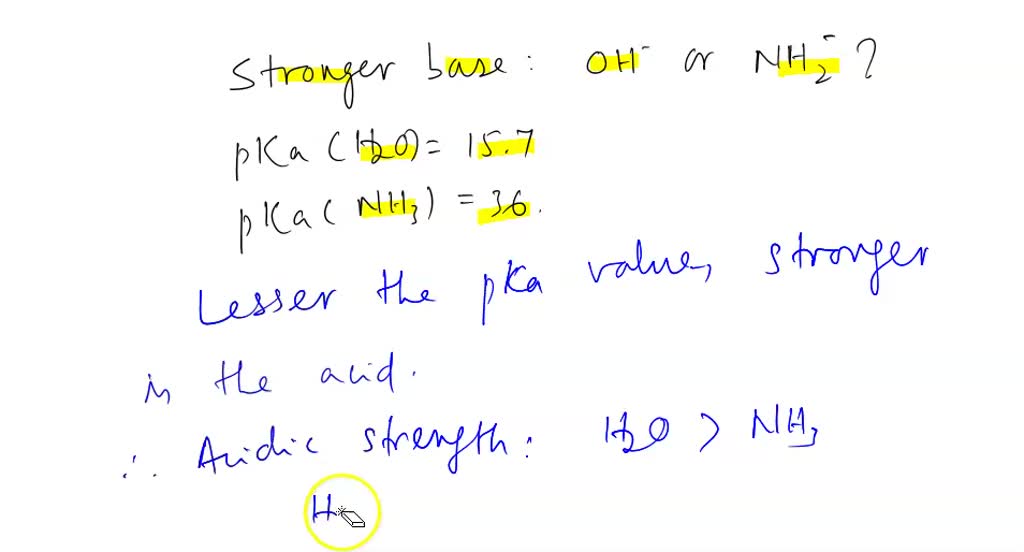 Stronger base: OH⁻ or NH₂⁻?
pKa (H2O) = 15.7
pKa (NH₃) = 36.
Lesser the pKa value, stronger
is the acid.
∴ Acidic strength: H2O > NH₃
H